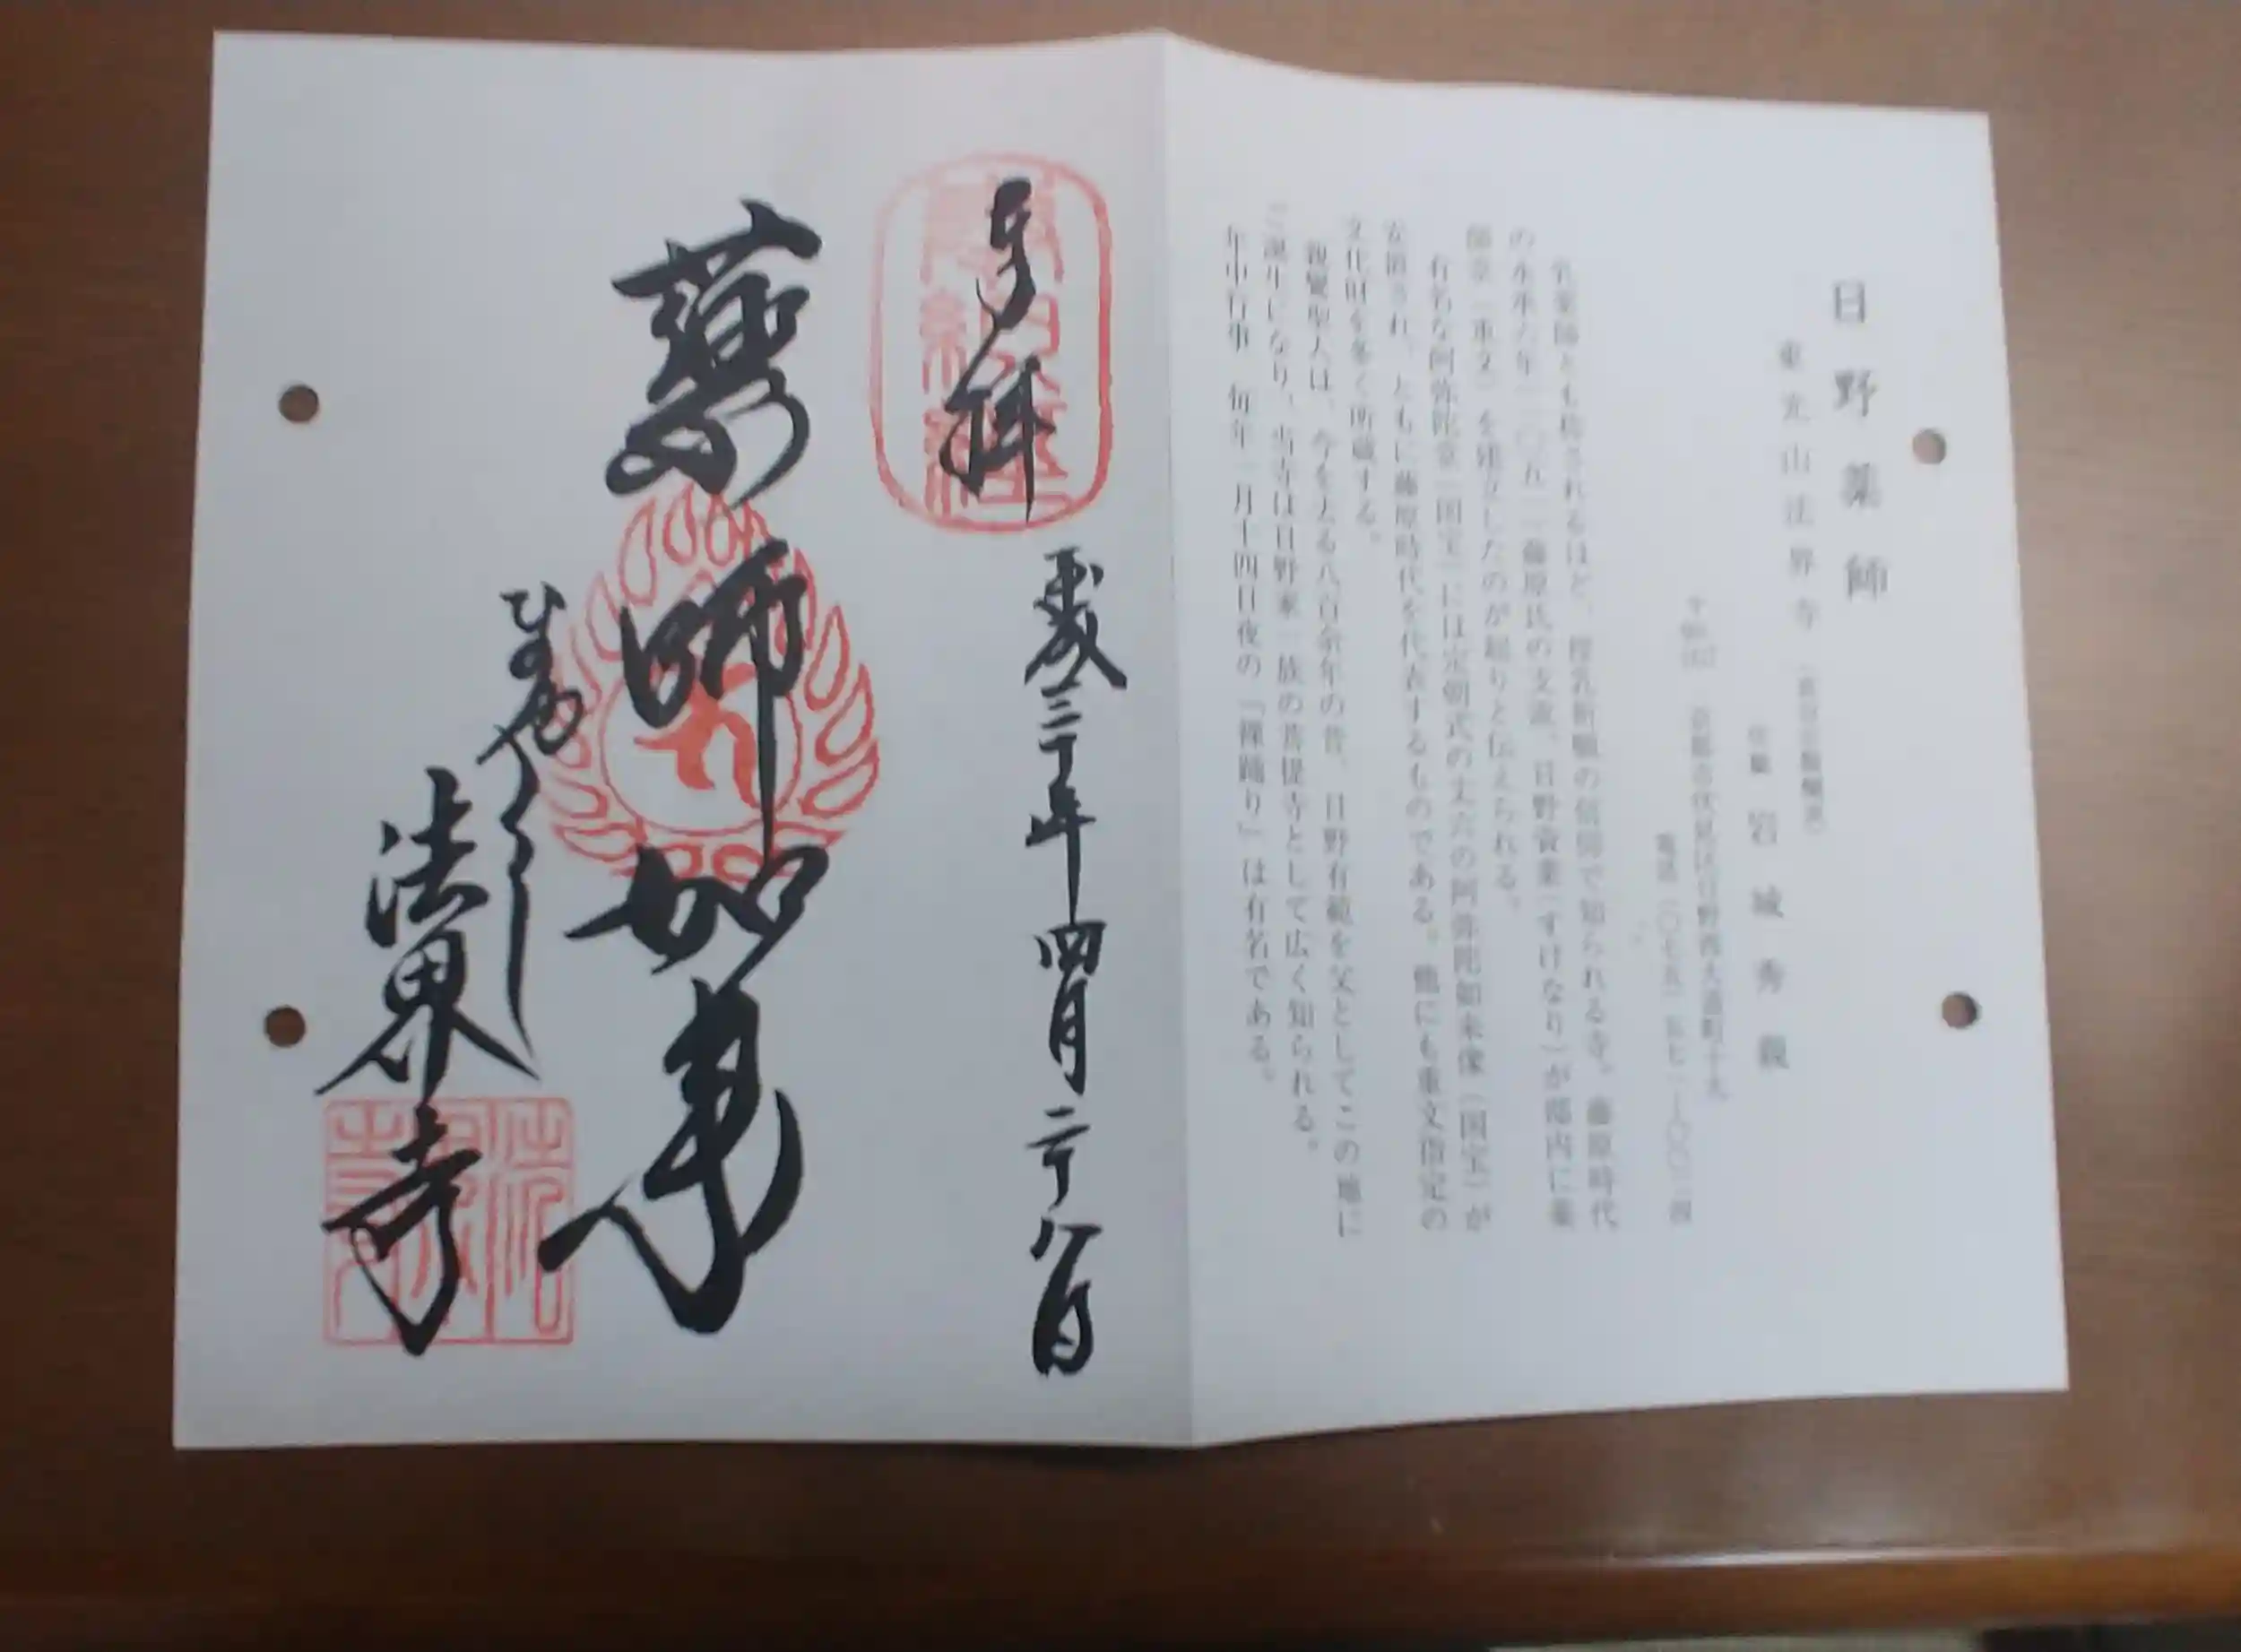 日野薬師
東光山法界寺
住職 岩城秀親
京都市伏見区日野西大道町十九
乳薬師とも称されるほど、授乳祈願の信仰で知られる寺。藤原時代
の永承六年(一〇五一)藤原氏の支流、日野資業(すけなり)が邸内に薬
師堂(重文)を建立したのが起りと伝えられる。
有名な阿弥陀堂(国宝)には定朝式の丈六の阿弥陀如来像(国宝)が
安置され、ともに藤原時代を代表するものである。他にも重文指定の
文化財を多く所蔵する。
親鸞聖人は、今を去る八百余年の昔、日野有範を父としてこの地に
ご誕生になり、当寺は日野家一族の菩提寺として広く知られる。
年中行事 毎年一月十四日夜の「裸踊り」は有名である。
奉拝
平成三十年四月二十八日
薬師如来
ひのやくし
法界寺